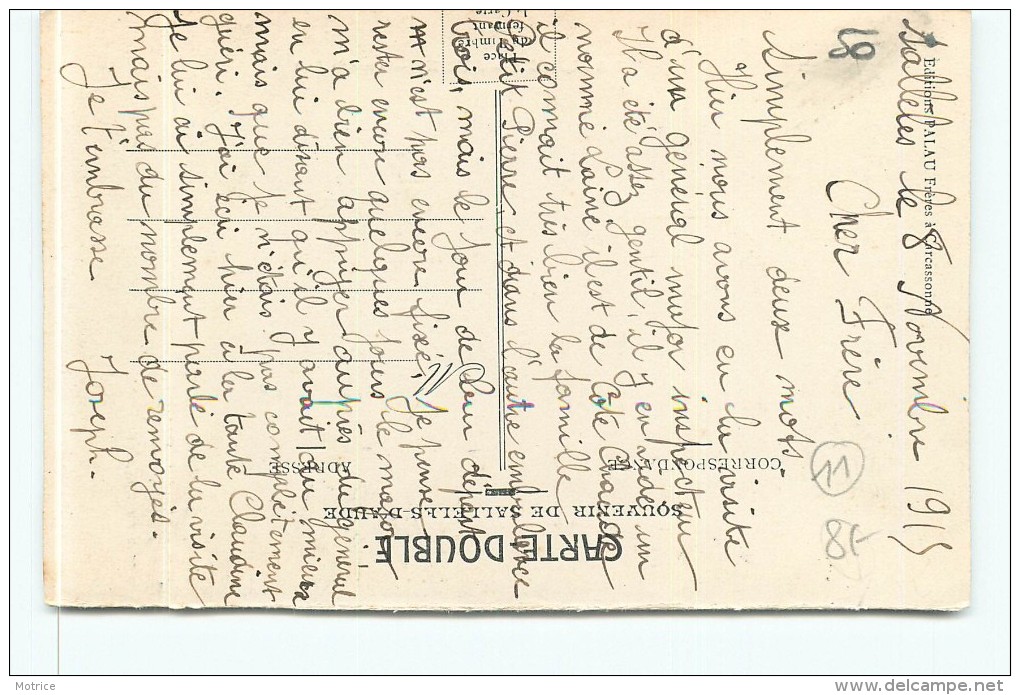 Sallèles le 8 Novembre 1915
Cher Frère
Simplement deux mots.
Hier nous avons eu la visite
d'un général major inspecteur
Il a été assez gentil, il y en a de un
nommé Laine il est de Côte Chaude
il connait très bien la famille
Petit Pierre et dans l'autre ambulance
trois, mais le jour de leur départ
n'est pas encore fixé. Je pense
rester encore quelques jours le major
m'a bien appuyer auprès du général
en lui disant qu'il y avait du mieux
mais que je n'étais pas complètement
guéri. J'ai écri hier à la tante Claudine
Je lui ai simplement parlé de la visite
mais pas du nombre de renvoyés.
Je t'embrasse
Joseph.
CARTE-DOUBLE
SOUVENIR DE SALLELES-D'AUDE
CORRESPONDANCE
ADRESSE
Place
du Timbre
fermant
la Carte
Editions PALAU Frères à Carcassonne
Motrice
www.delcampe.net